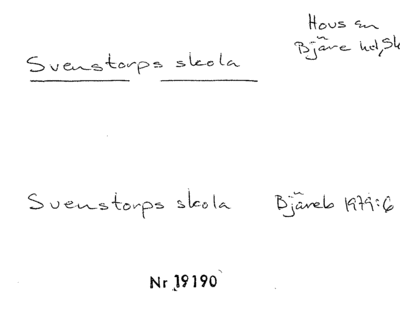 Hovs sn
Bjäre hd, Sk
Svenstorps skola
Svenstorps skola Bjäreb 1979:6
Nr 19190